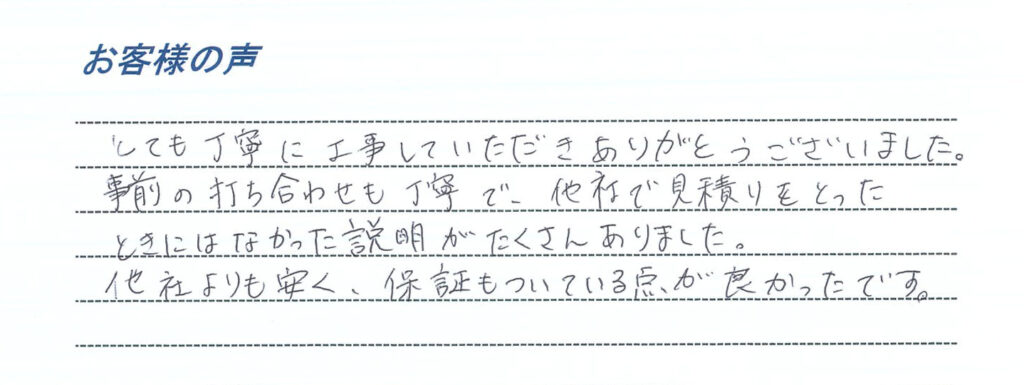 お客様の声
とても丁寧に工事していただきありがとうございました。
事前の打ち合わせも丁寧で、他社で見積りをとった
ときにはなかった説明がたくさんありました。
他社よりも安く、保証もついている点が良かったです。